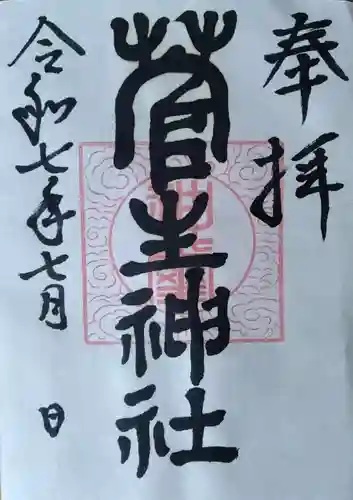 奉拝
菅生神社
令和七年七月 日